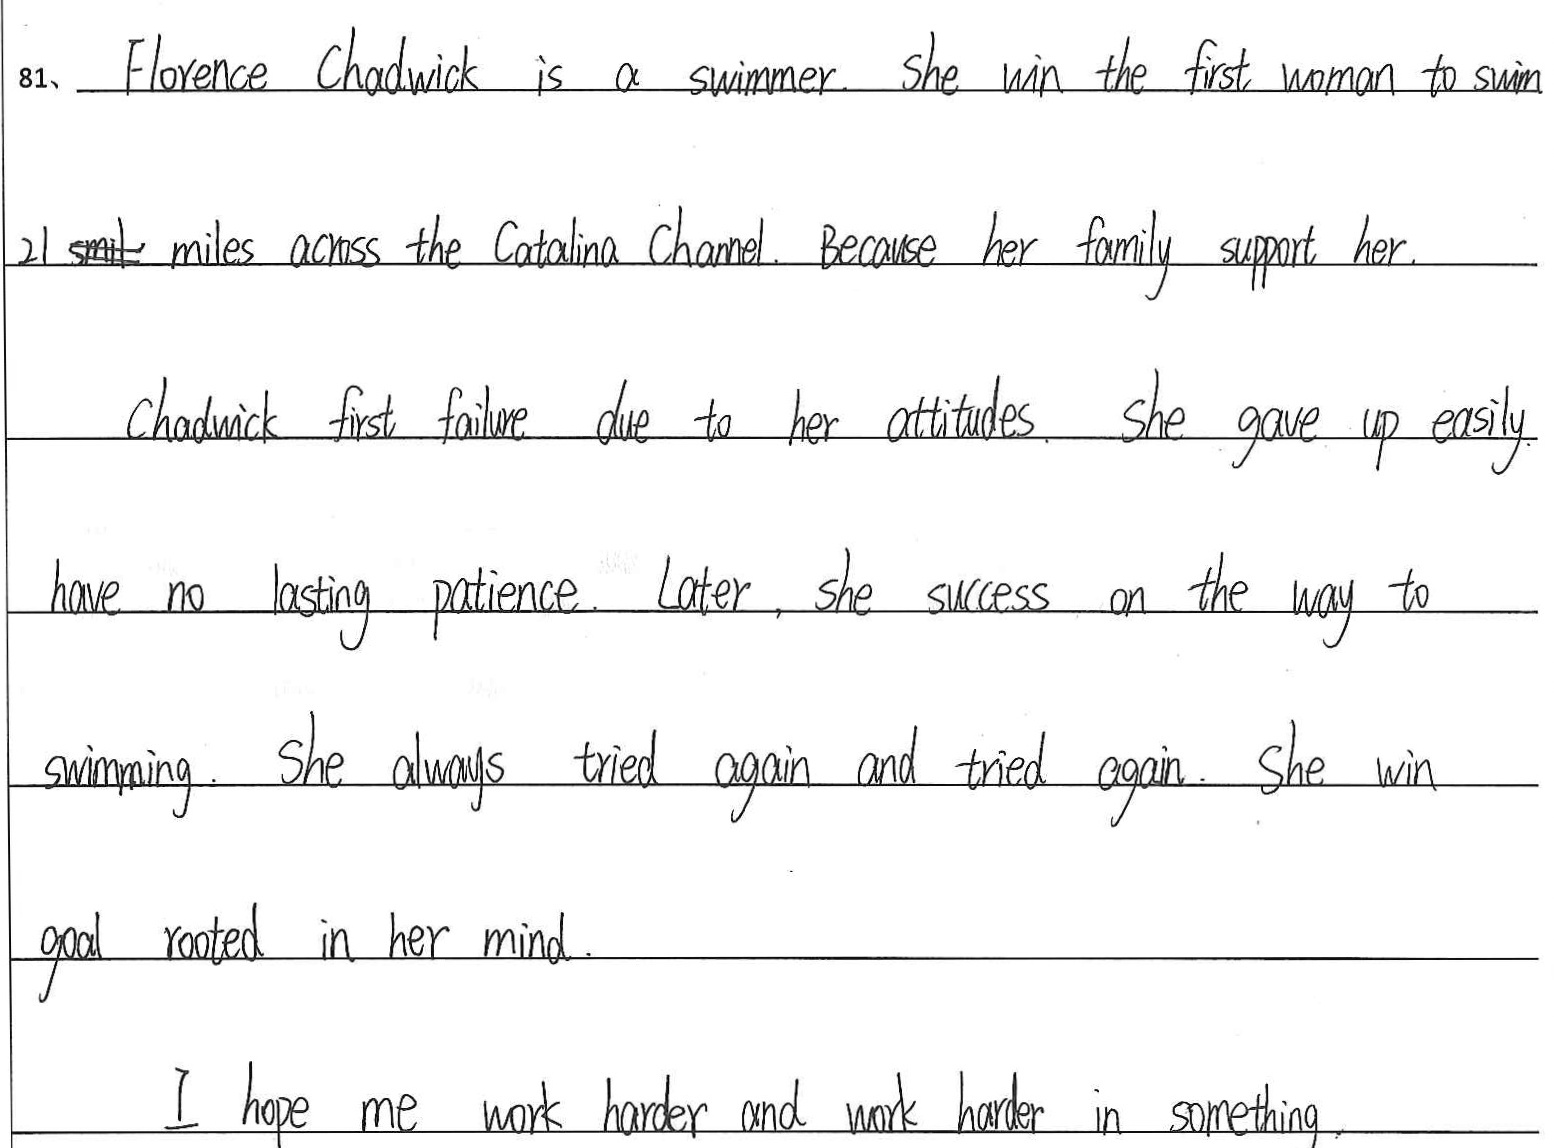 81、 Florence Chadwick is a swimmer. She win the first woman to swim
21 miles across the Catalina Channel. Because her family support her.
Chadwick first failure due to her attitudes. She gave up easily.
have no lasting patience. Later, she success on the way to
swimming. She always tried again and tried again. She win
goal rooted in her mind.
I hope me work harder and work harder in something.